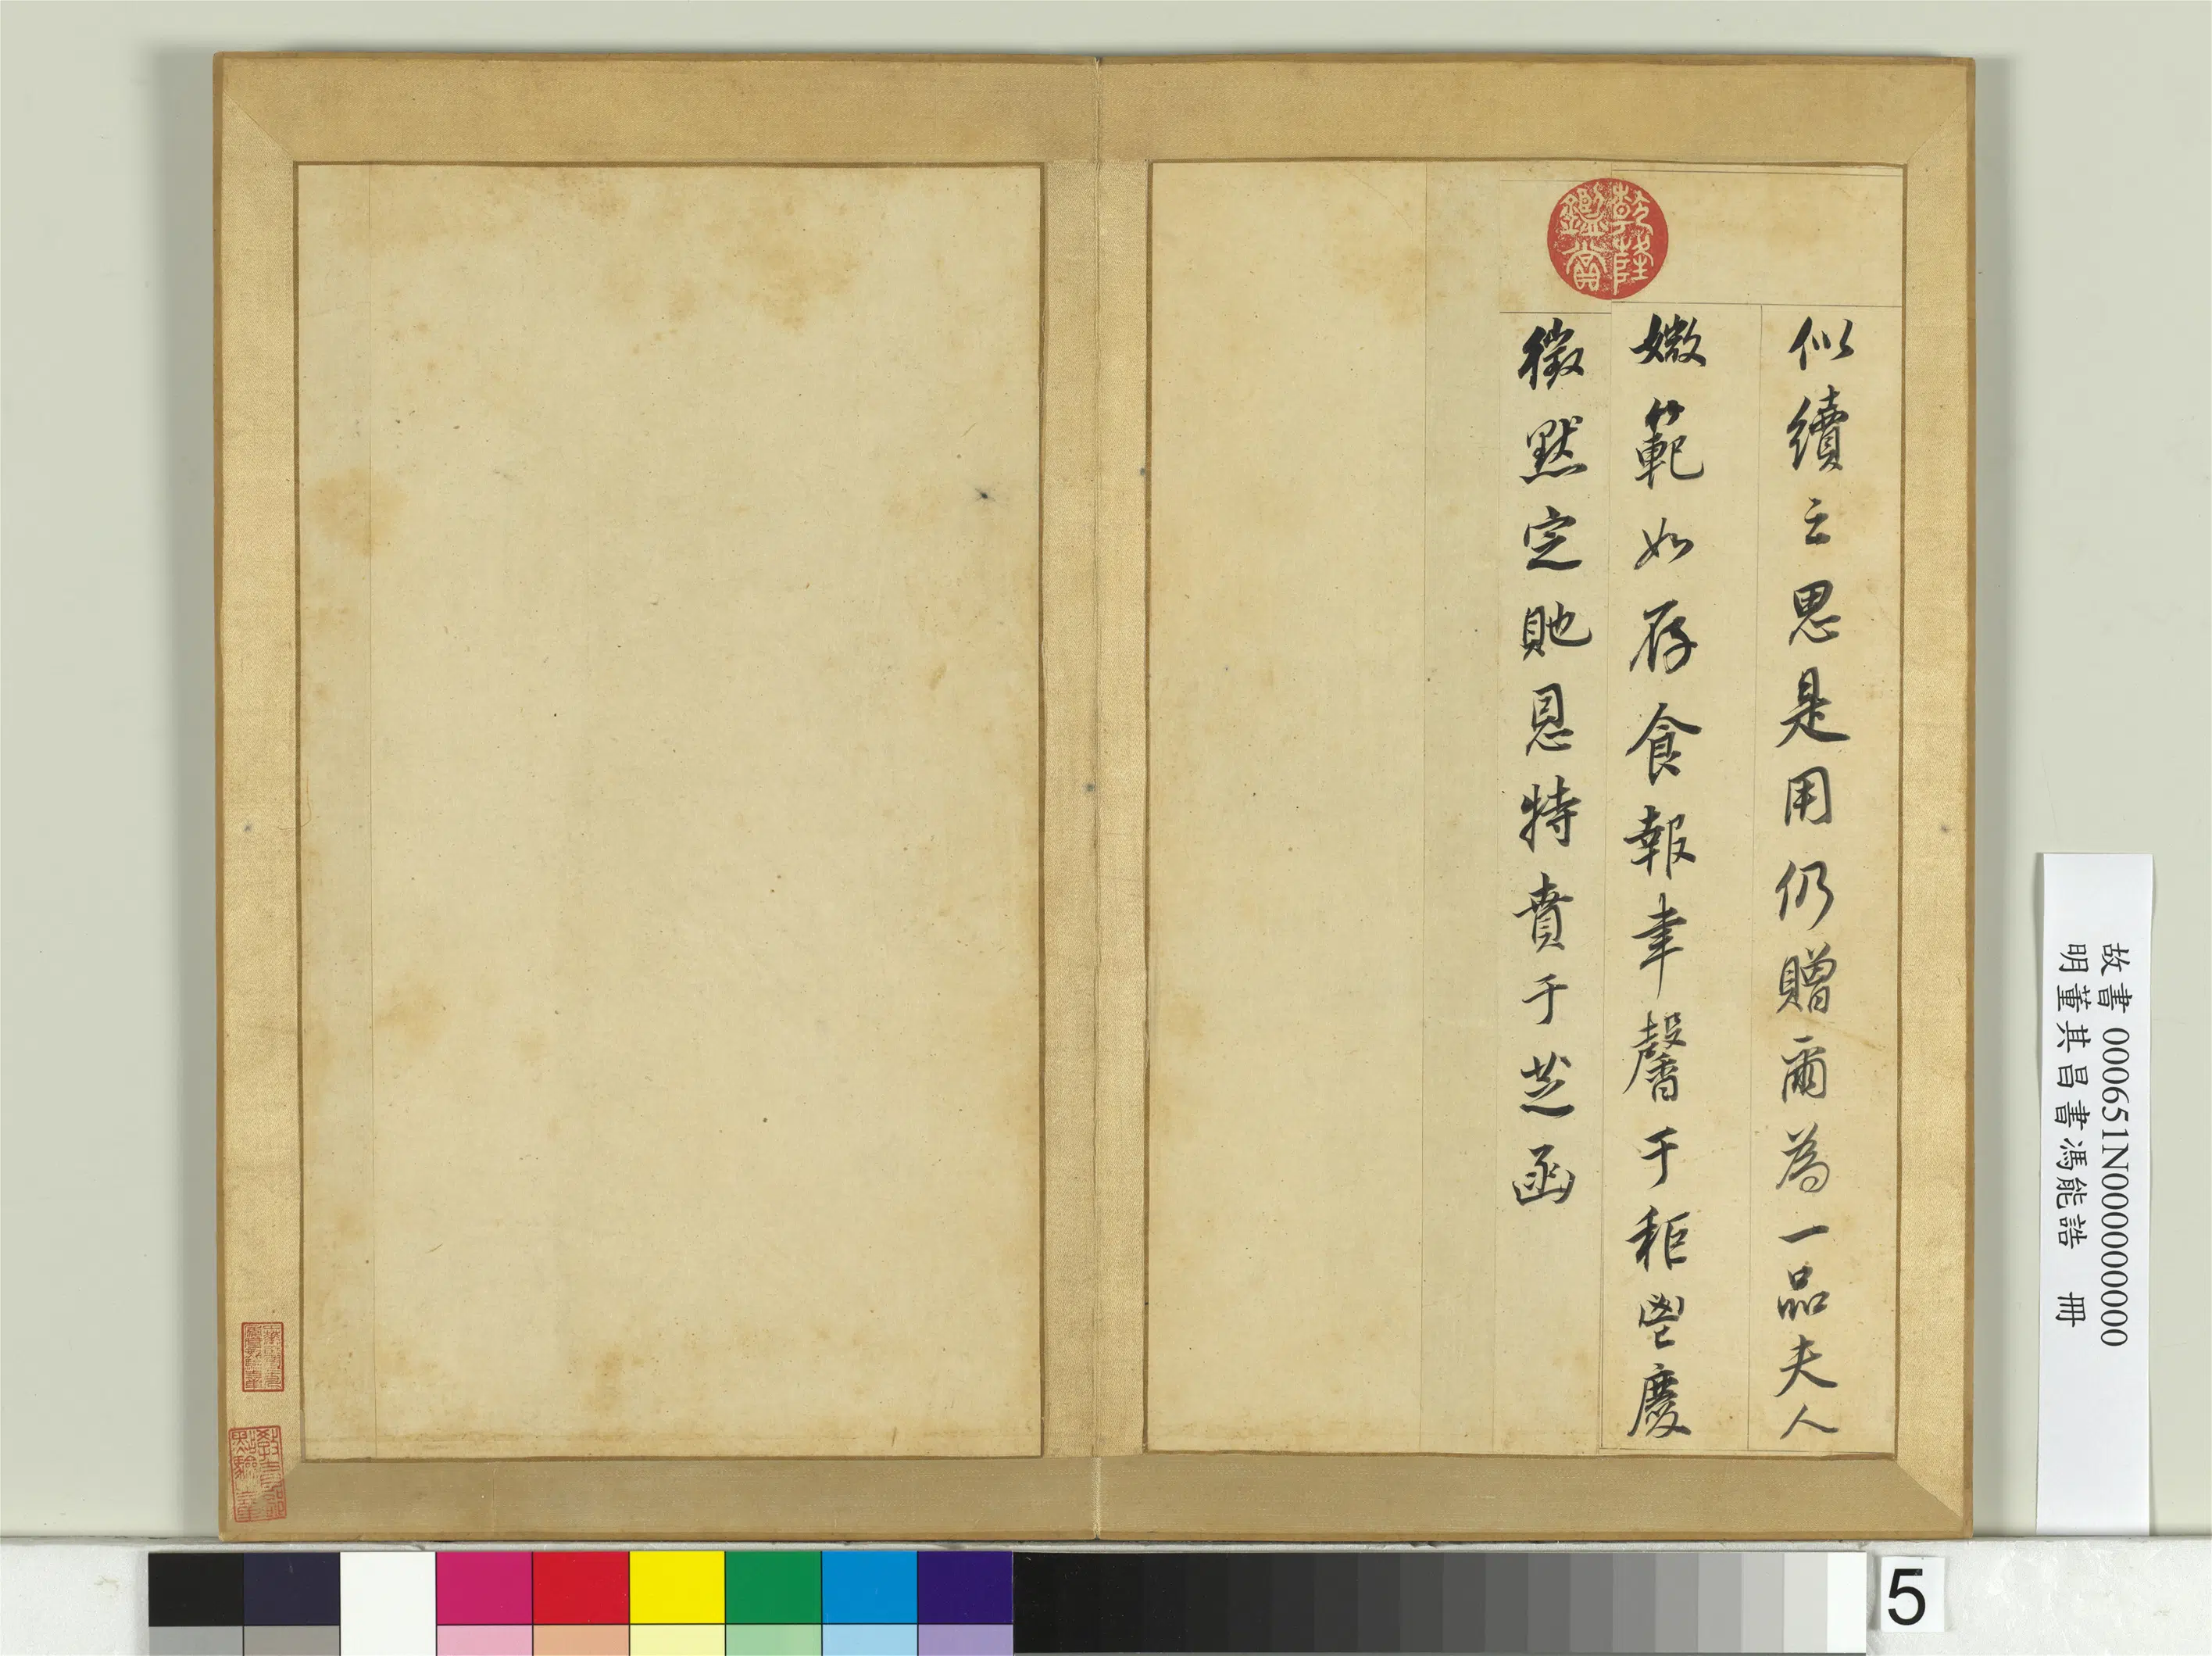 似續之思是用仍贈爾為一品夫人
媺範如存食報聿馨于秬鬯慶
徵默定貤恩特賁于芝函
乾隆鑑賞
故書 000651N000000000
明董其昌書馮能誥 冊
5